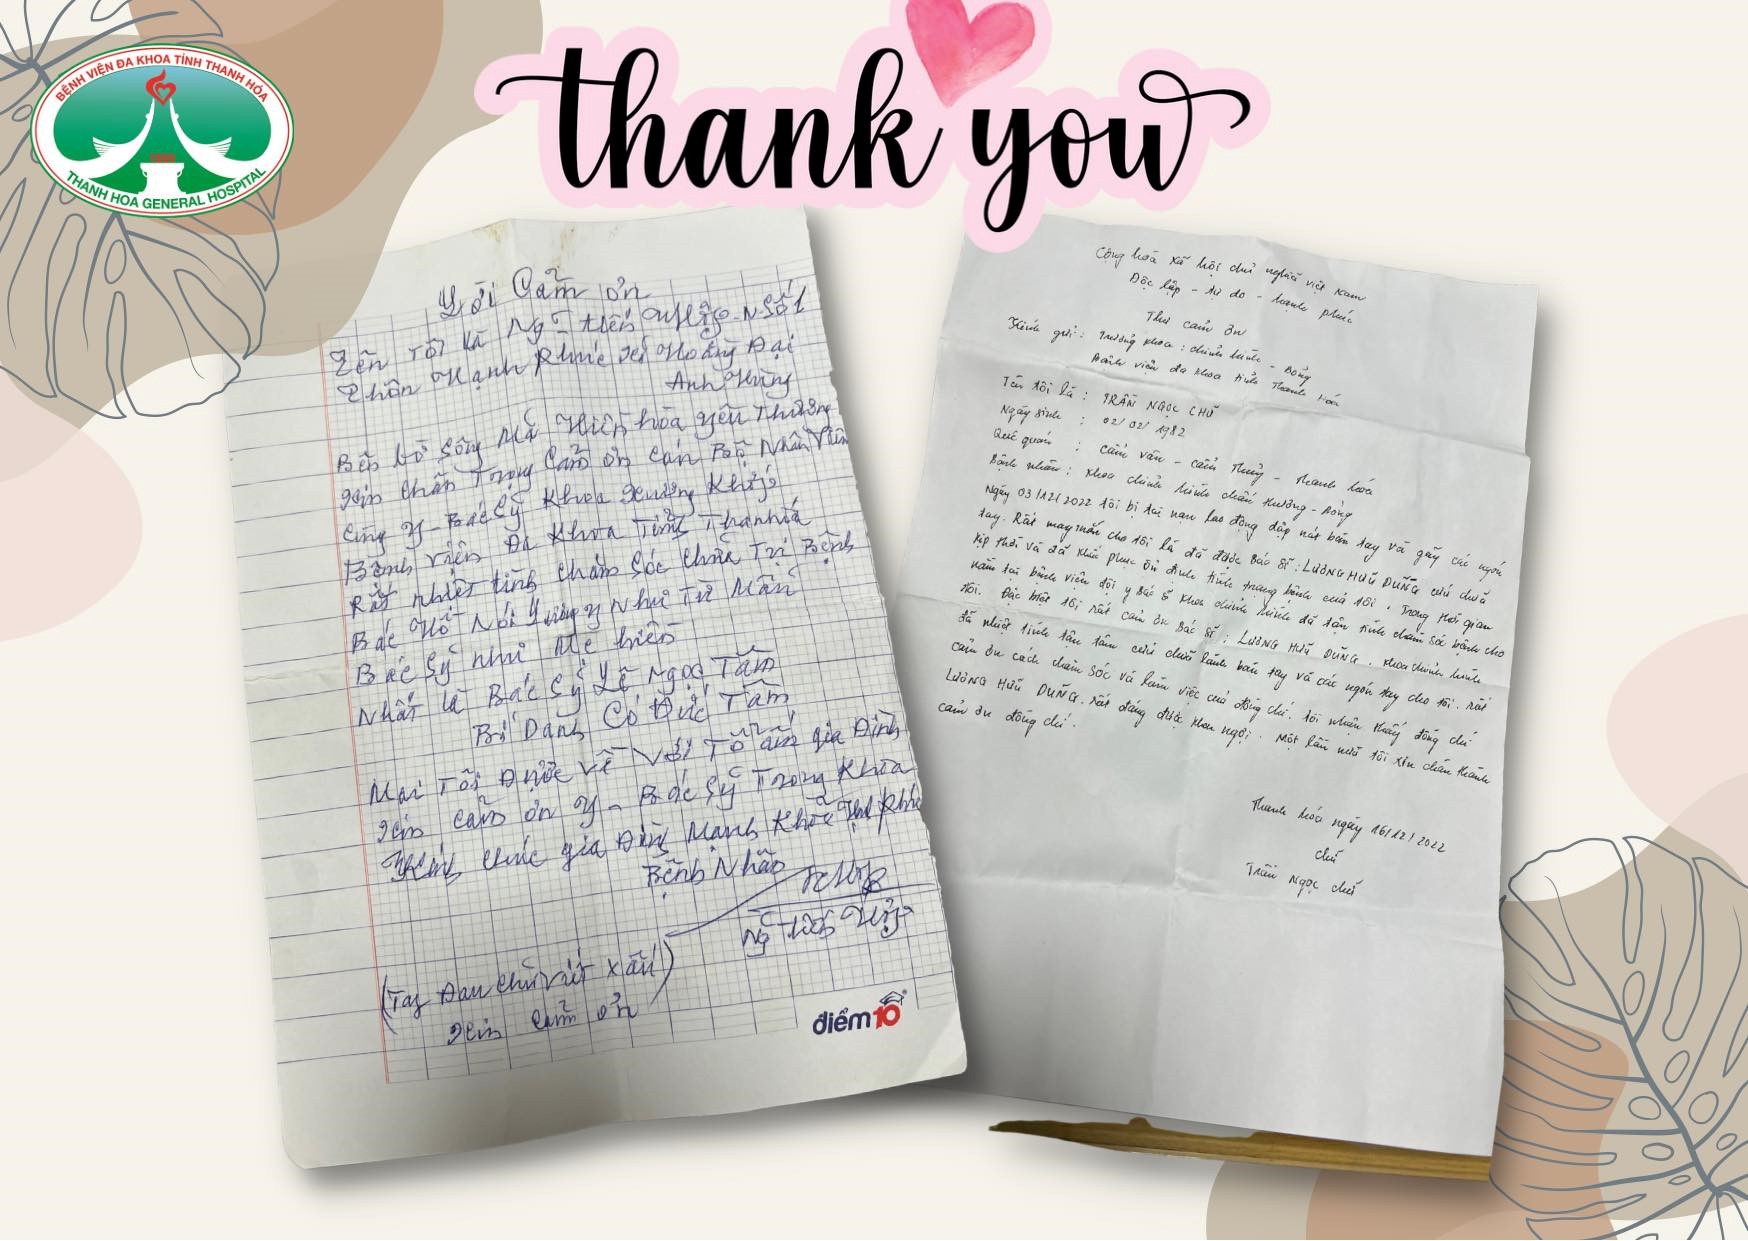 BỆNH VIỆN ĐA KHOA TỈNH THANH HÓA
THANH HOA GENERAL HOSPITAL
thank you
Lời Cảm ơn
Tên Tôi là Ng - tiến
Thôn Hạnh Phúc xã Hoằng Đại
Anh Hùng
Bên bờ Sông Mã Hiền hòa yêu Thương
Xin Chân Trọng Cảm ơn Cán Bộ Nhân Viên
Cùng Y - Bác Sỹ Khoa Xương Khớp
Bệnh Viện Đa Khoa Tỉnh Thanh hóa
Rất nhiệt tình chăm Sóc chữa Trị Bệnh
Bác Hồ Nói Lương y Như Từ Mẫu
Bác Sỹ như Mẹ hiền
Nhất là Bác Sỹ Lê Ngọc Tâm
Bí Danh Có Đức Tâm
Mai Tôi Được về Với Tổ ấm gia Đình
Xin cảm ơn Y - Bác Sỹ Trong Khoa
Kính chúc gia Đình Mạnh Khỏe
Bệnh Nhân
Ng Tiến
(Tay Đau chữ viết xấu)
Xin cảm ơn
điểm 10
Cộng hoà xã hội chủ nghĩa việt nam
Độc lập - tự do - hạnh phúc
Thư cảm ơn
Kính gửi: Trưởng khoa: chỉnh hình - Bỏng
Bệnh viện đa khoa tỉnh Thanh Hóa
Tên tôi là : TRẦN NGỌC CHỨ
Ngày sinh : 02/02/1982
Quê quán : cẩm vân - cẩm Thủy - Thanh hóa
Bệnh nhân: khoa chỉnh hình chấn thương - Bỏng
Ngày 03/12/2022 tôi bị tai nạn lao động dập nát bàn tay và gãy các ngón
tay. Rất may mắn cho tôi là đã được Bác sĩ: LƯƠNG HỮU DŨNG cứu chữa
kịp thời và đã khắc phục ổn định tình trạng bệnh của tôi. Trong thời gian
nằm tại bệnh viện đội y Bác sĩ khoa chỉnh hình đã tận tình chăm sóc bệnh cho
tôi. Đặc biệt tôi rất cảm ơn Bác sĩ: LƯƠNG HỮU DŨNG. khoa chỉnh hình
đã nhiệt tình tận tâm cứu chữa lành bàn tay và các ngón tay cho tôi. rất
cảm ơn cách chăm sóc và làm việc của đồng chí. tôi nhận thấy đồng chí
LƯƠNG HỮU DŨNG. rất đáng được khen ngợi. Một lần nữa tôi xin chân thành
cảm ơn đồng chí.
Thanh hóa ngày 16/12/2022
chứ
Trần Ngọc chứ